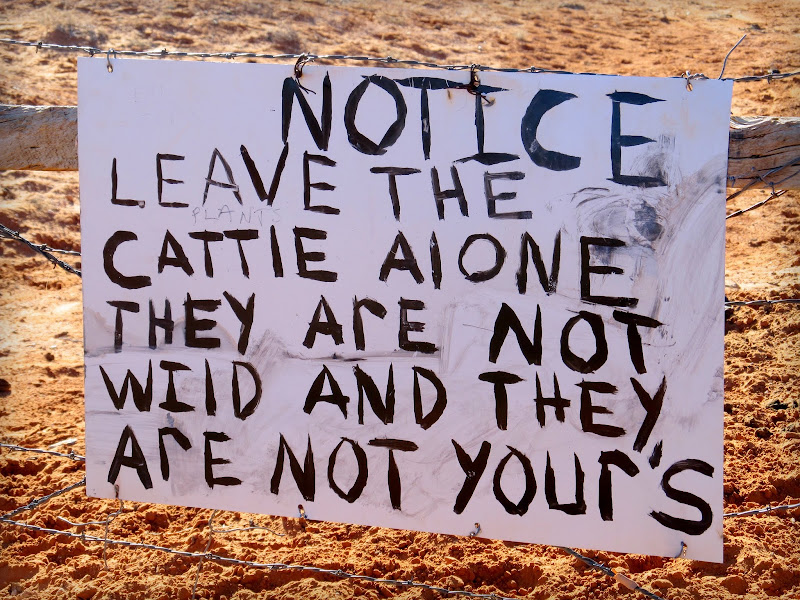 NOTICE
LEAVE THE
PLANTS
CATTlE AlONE
THEY ArE NOT
WIlD AND THEY
ArE NOT YOUr'S